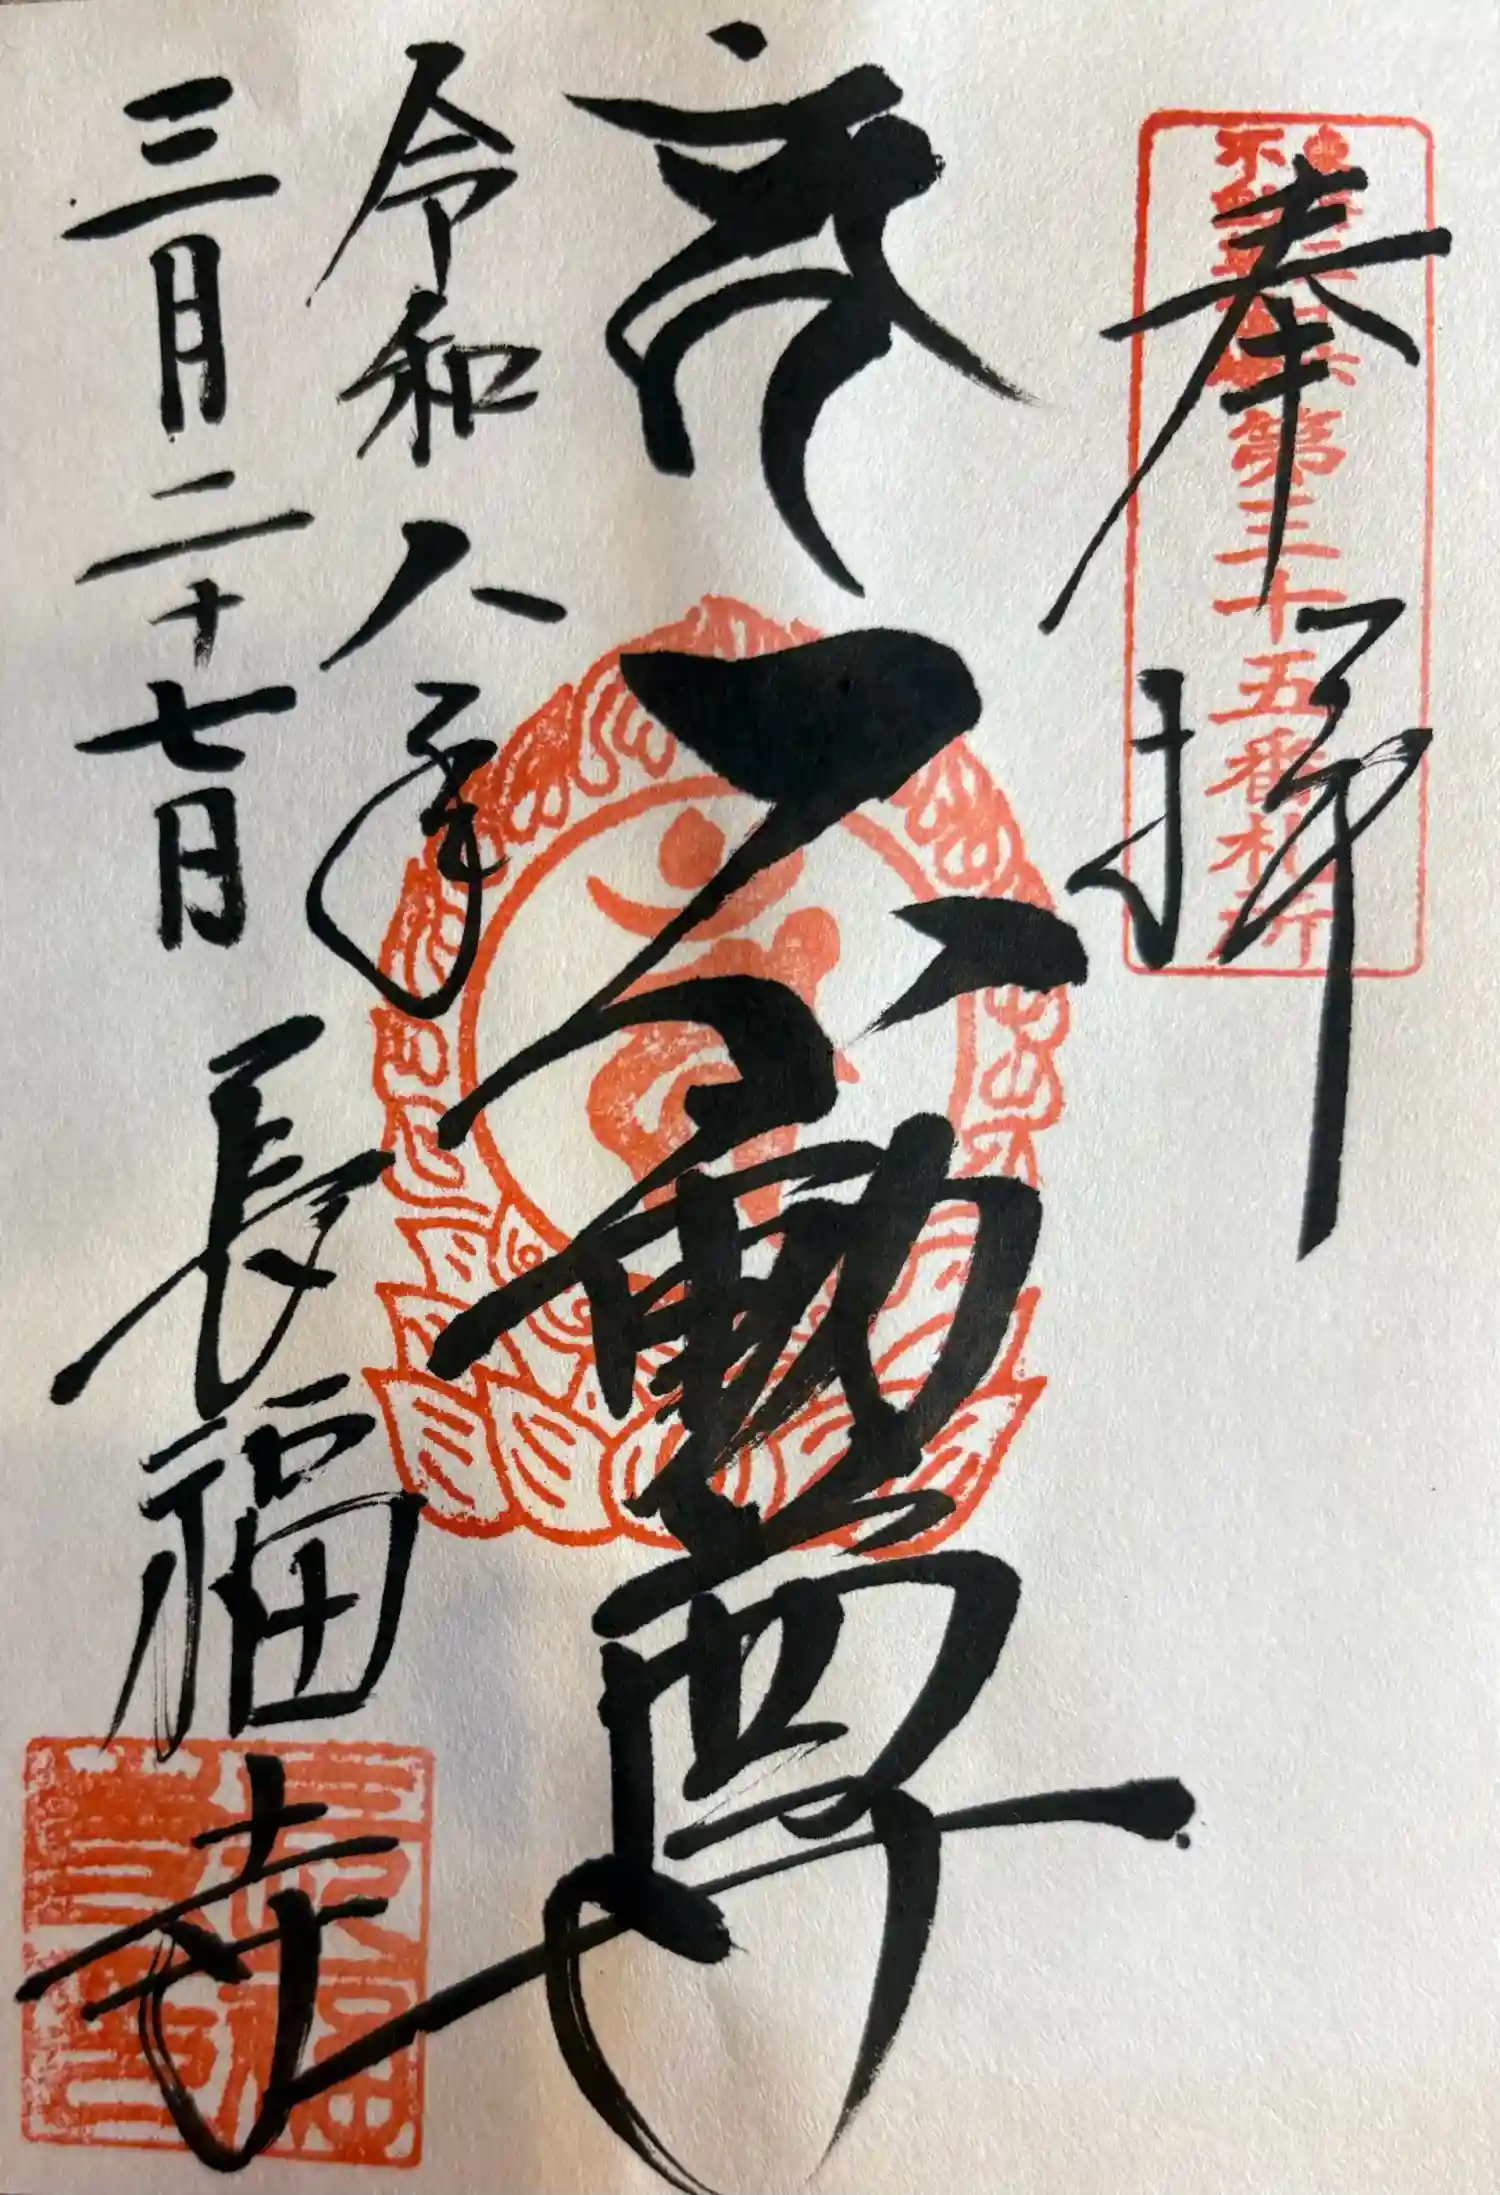 奉拝
第三十五番札所
不動尊
令和八年
三月二十七日
長福寺